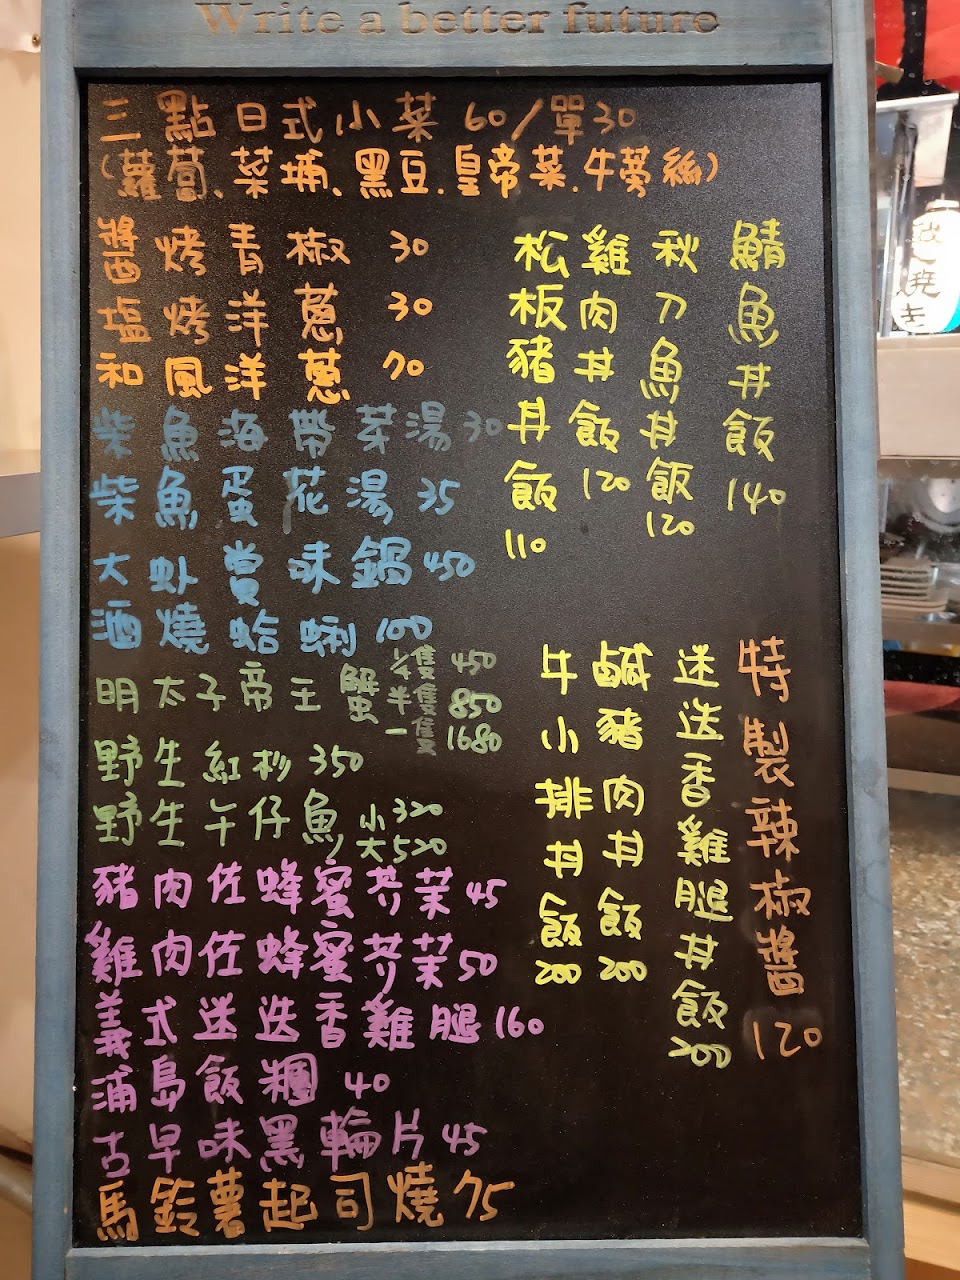 Write a better future
三點日式小菜 60/單30
(蘿蔔、菜埔、黑豆.皇帝菜.牛蒡絲)
醬烤青椒 30
塩烤洋蔥 30
和風洋蔥 70
柴魚海帶芽湯 30
柴魚蛋花湯 35
大虾賞味鍋 450
酒燒蛤蜊 100
明太子帝王蟹 ¼隻 450
半隻 850
一隻 1680
野生紅杉 350
野生午仔魚 小320
大520
豬肉佐蜂蜜芥茉 45
雞肉佐蜂蜜芥茉 50
義式迷迭香雞腿 160
浦島飯糰 40
古早味黑輪片 45
馬鈴薯起司燒 75
鯖魚丼飯 140
秋刀魚丼飯 120
雞肉丼飯 120
松板豬丼飯 110
特製辣椒醬 120
迷迭香雞腿丼飯 200
鹹豬肉丼飯 200
牛小排丼飯 200
燒き